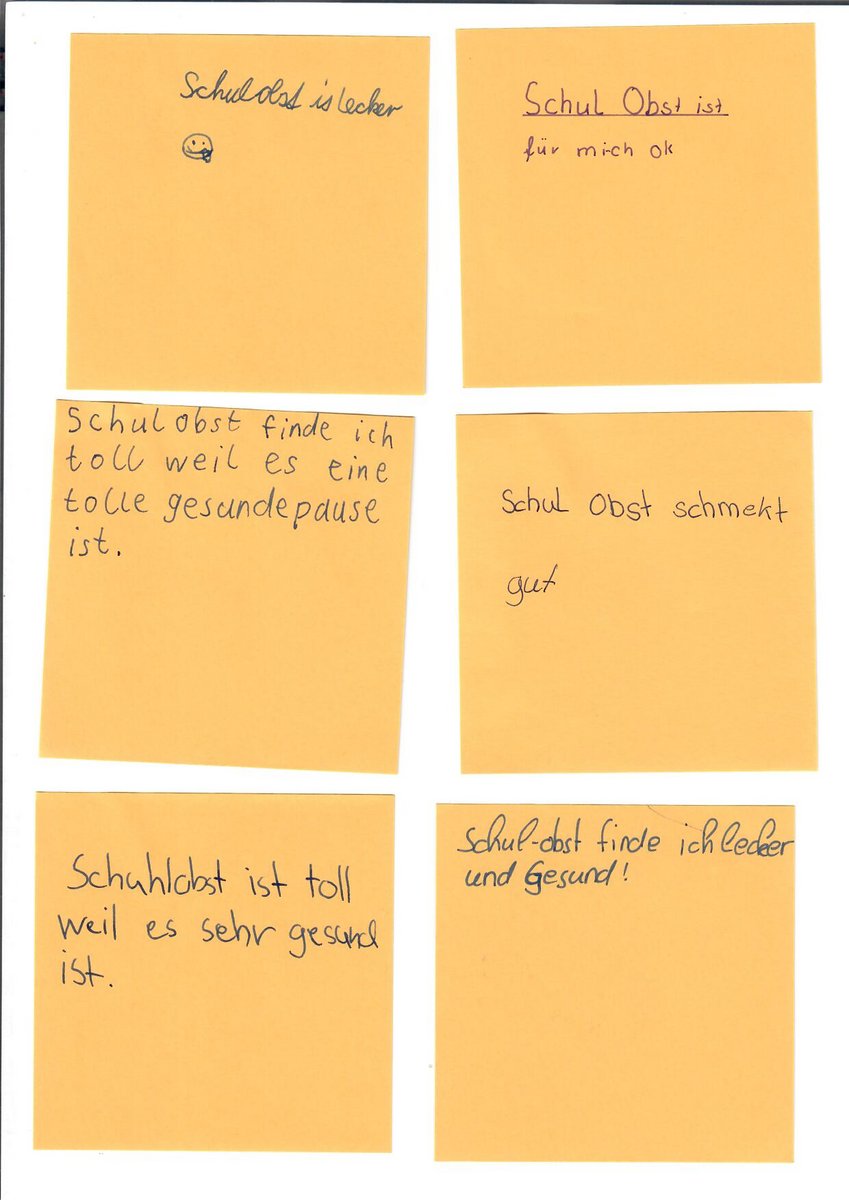 Schulobst is lecker
Schul Obst ist
für mich ok
Schulobst finde ich
toll weil es eine
tolle gesundepause
ist.
Schul Obst schmekt
gut
Schuhlobst ist toll
weil es sehr gesund
ist.
Schul-obst finde ich lecker
und Gesund!